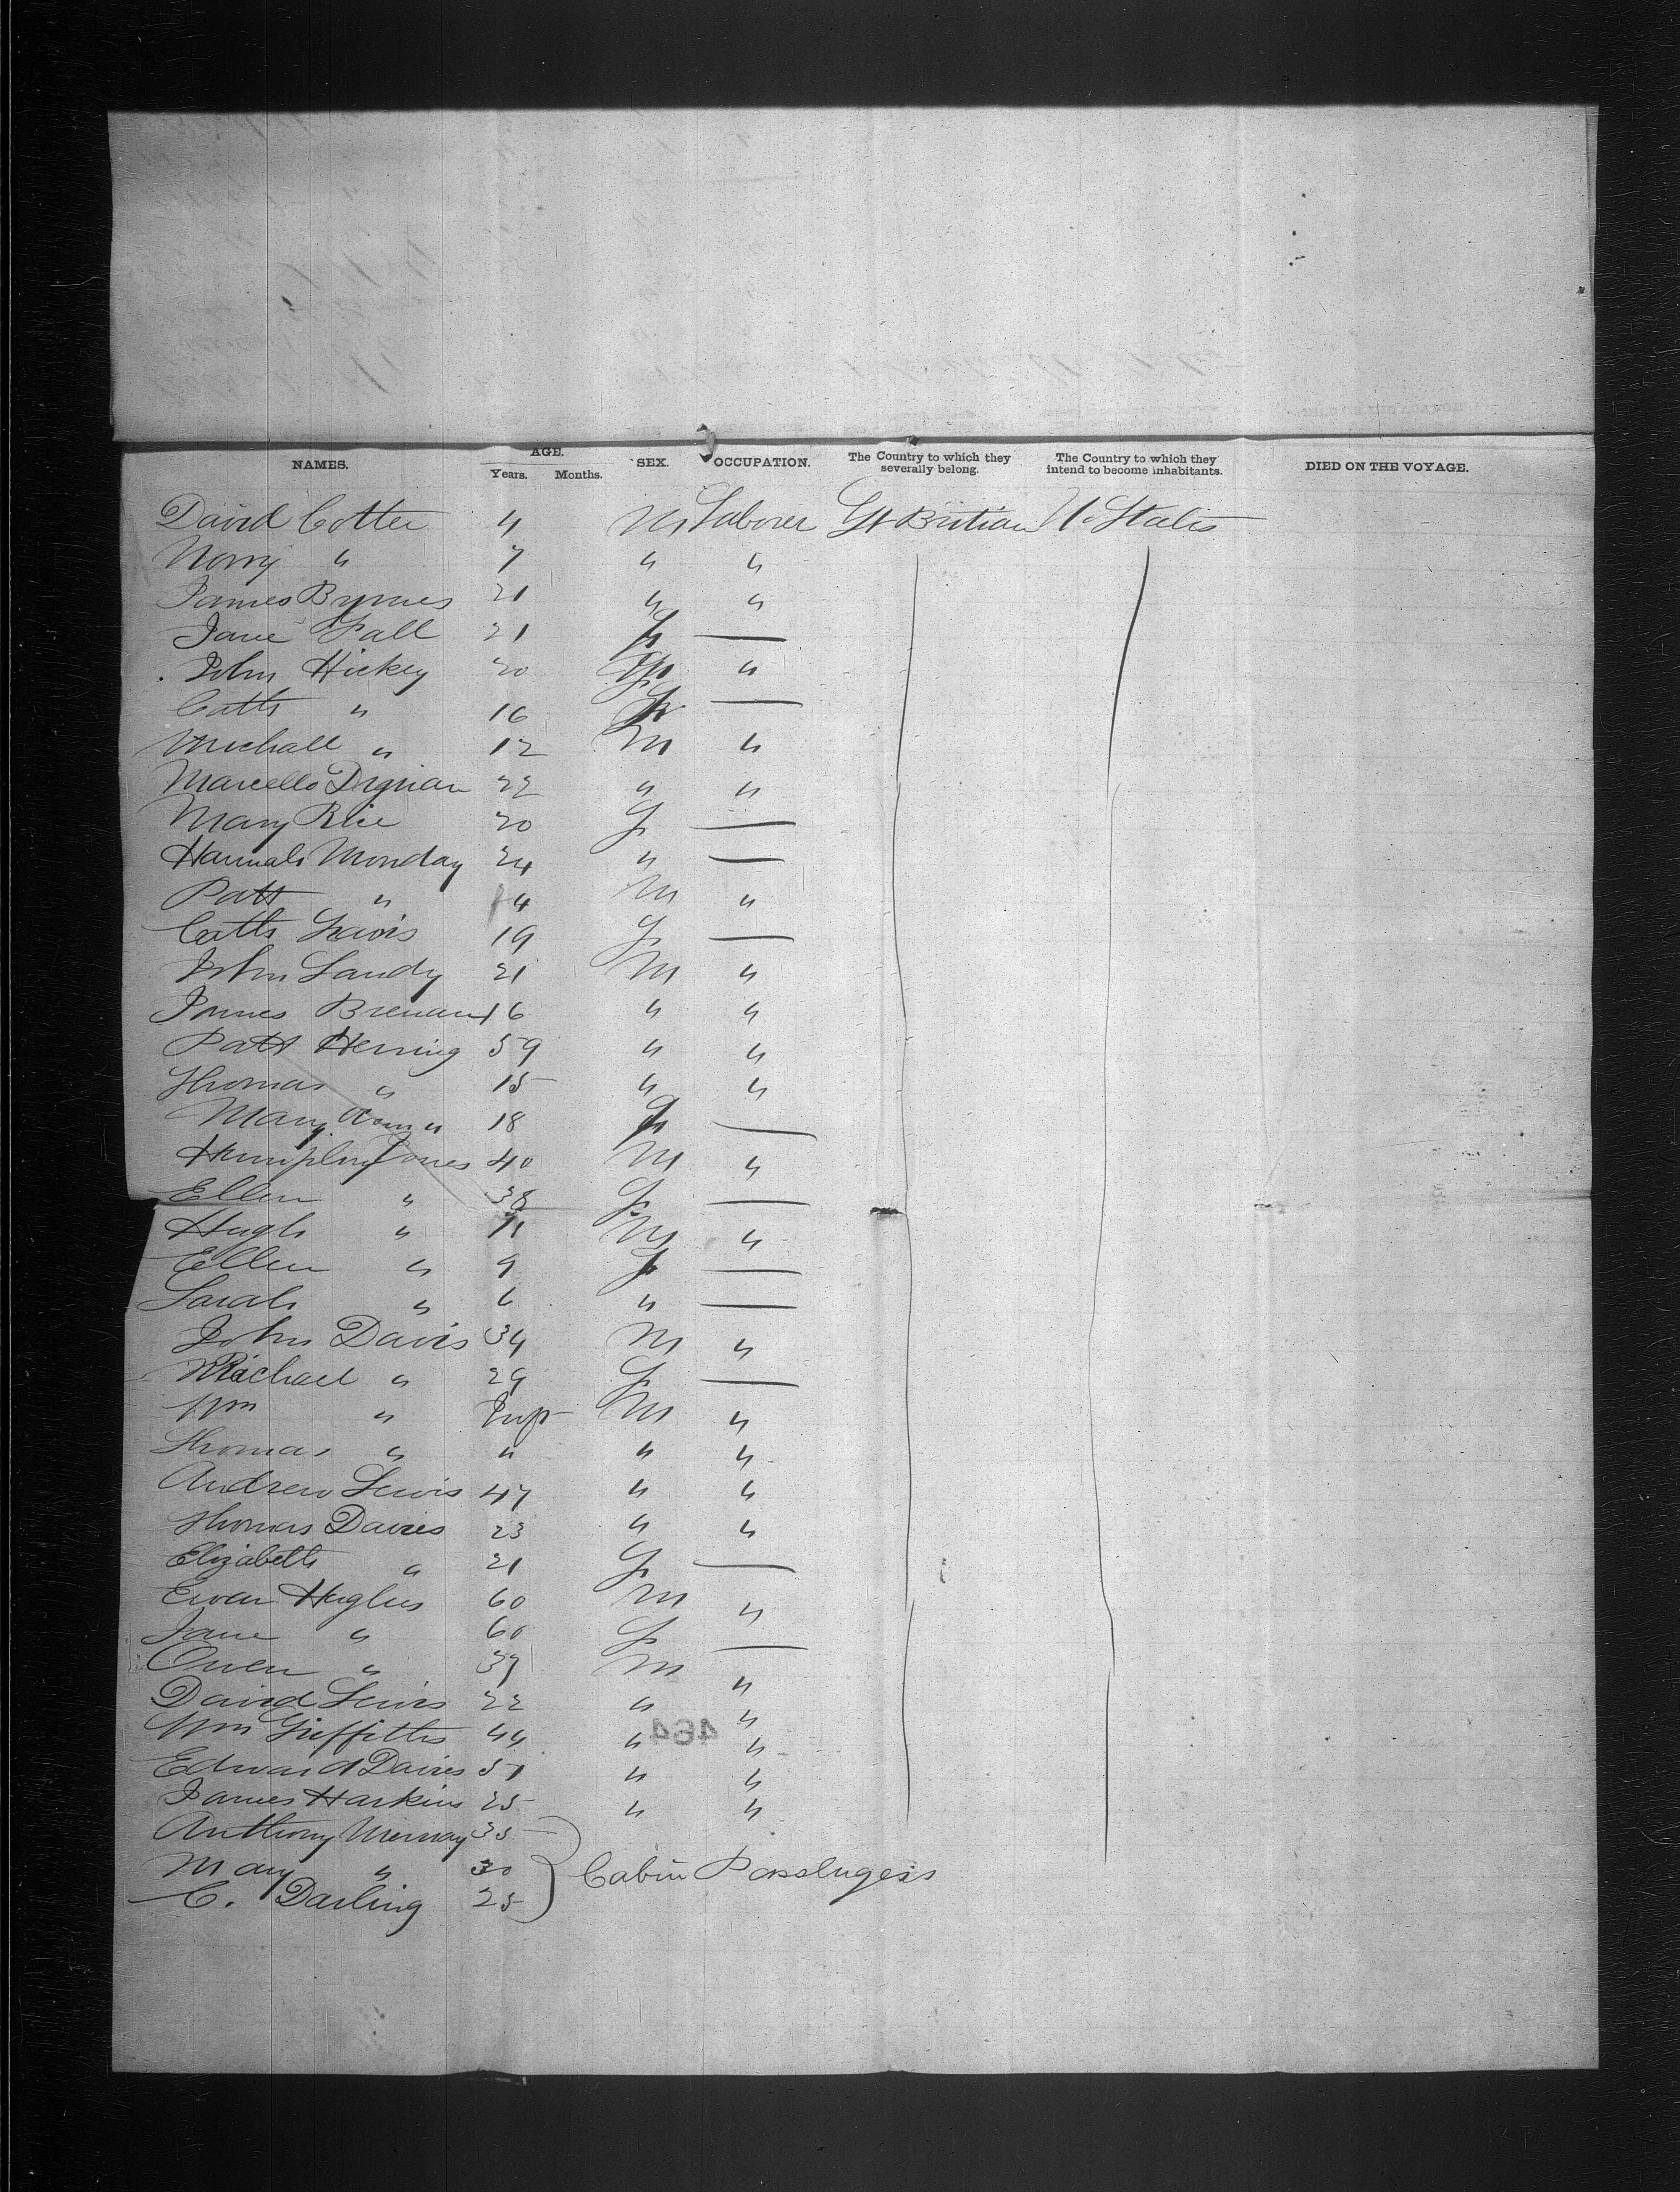 NAMES. AGE. Years. Months. SEX. OCCUPATION. The Country to which they severally belong. The Country to which they intend to become inhabitants. DIED ON THE VOYAGE.
David Cotter 4 M Laborer Gt Britian U. States
Norry " 7 " "
James Byrnes 21 " "
Jane Fall 21 F —
John Hickey 20 M "
Cath " 16 F —
Michall " 12 M "
Marcello Dignan 22 " "
Mary Rice 20 F —
Hannah Monday 24 " —
Patt " 4 M "
Cath Lewis 19 F —
John Landy 21 M "
James Brenan 16 " "
Patt Herring 59 " "
Thomas " 15 " "
Mary Ann " 18 F —
Humphry Jones 40 M "
Ellen " 38 F —
Hugh " 11 M "
Ellen " 9 F —
Sarah " 6 " —
John Davis 34 M "
Richael " 29 F —
Wm " Inf M "
Thomas " " " "
Andrew Lewis 47 " "
Thomas Davies 23 " "
Elizabeth " 21 F —
Evan Hughes 60 M "
Jane " 60 F —
Owen " 37 M "
David Lewis 22 " "
Wm Grieffiths 44 " "
464
Edward Davies 51 " "
James Harkins 25 " "
Anthony Murray 35
Mary " 30 Cabin Passengers
C. Darling 25